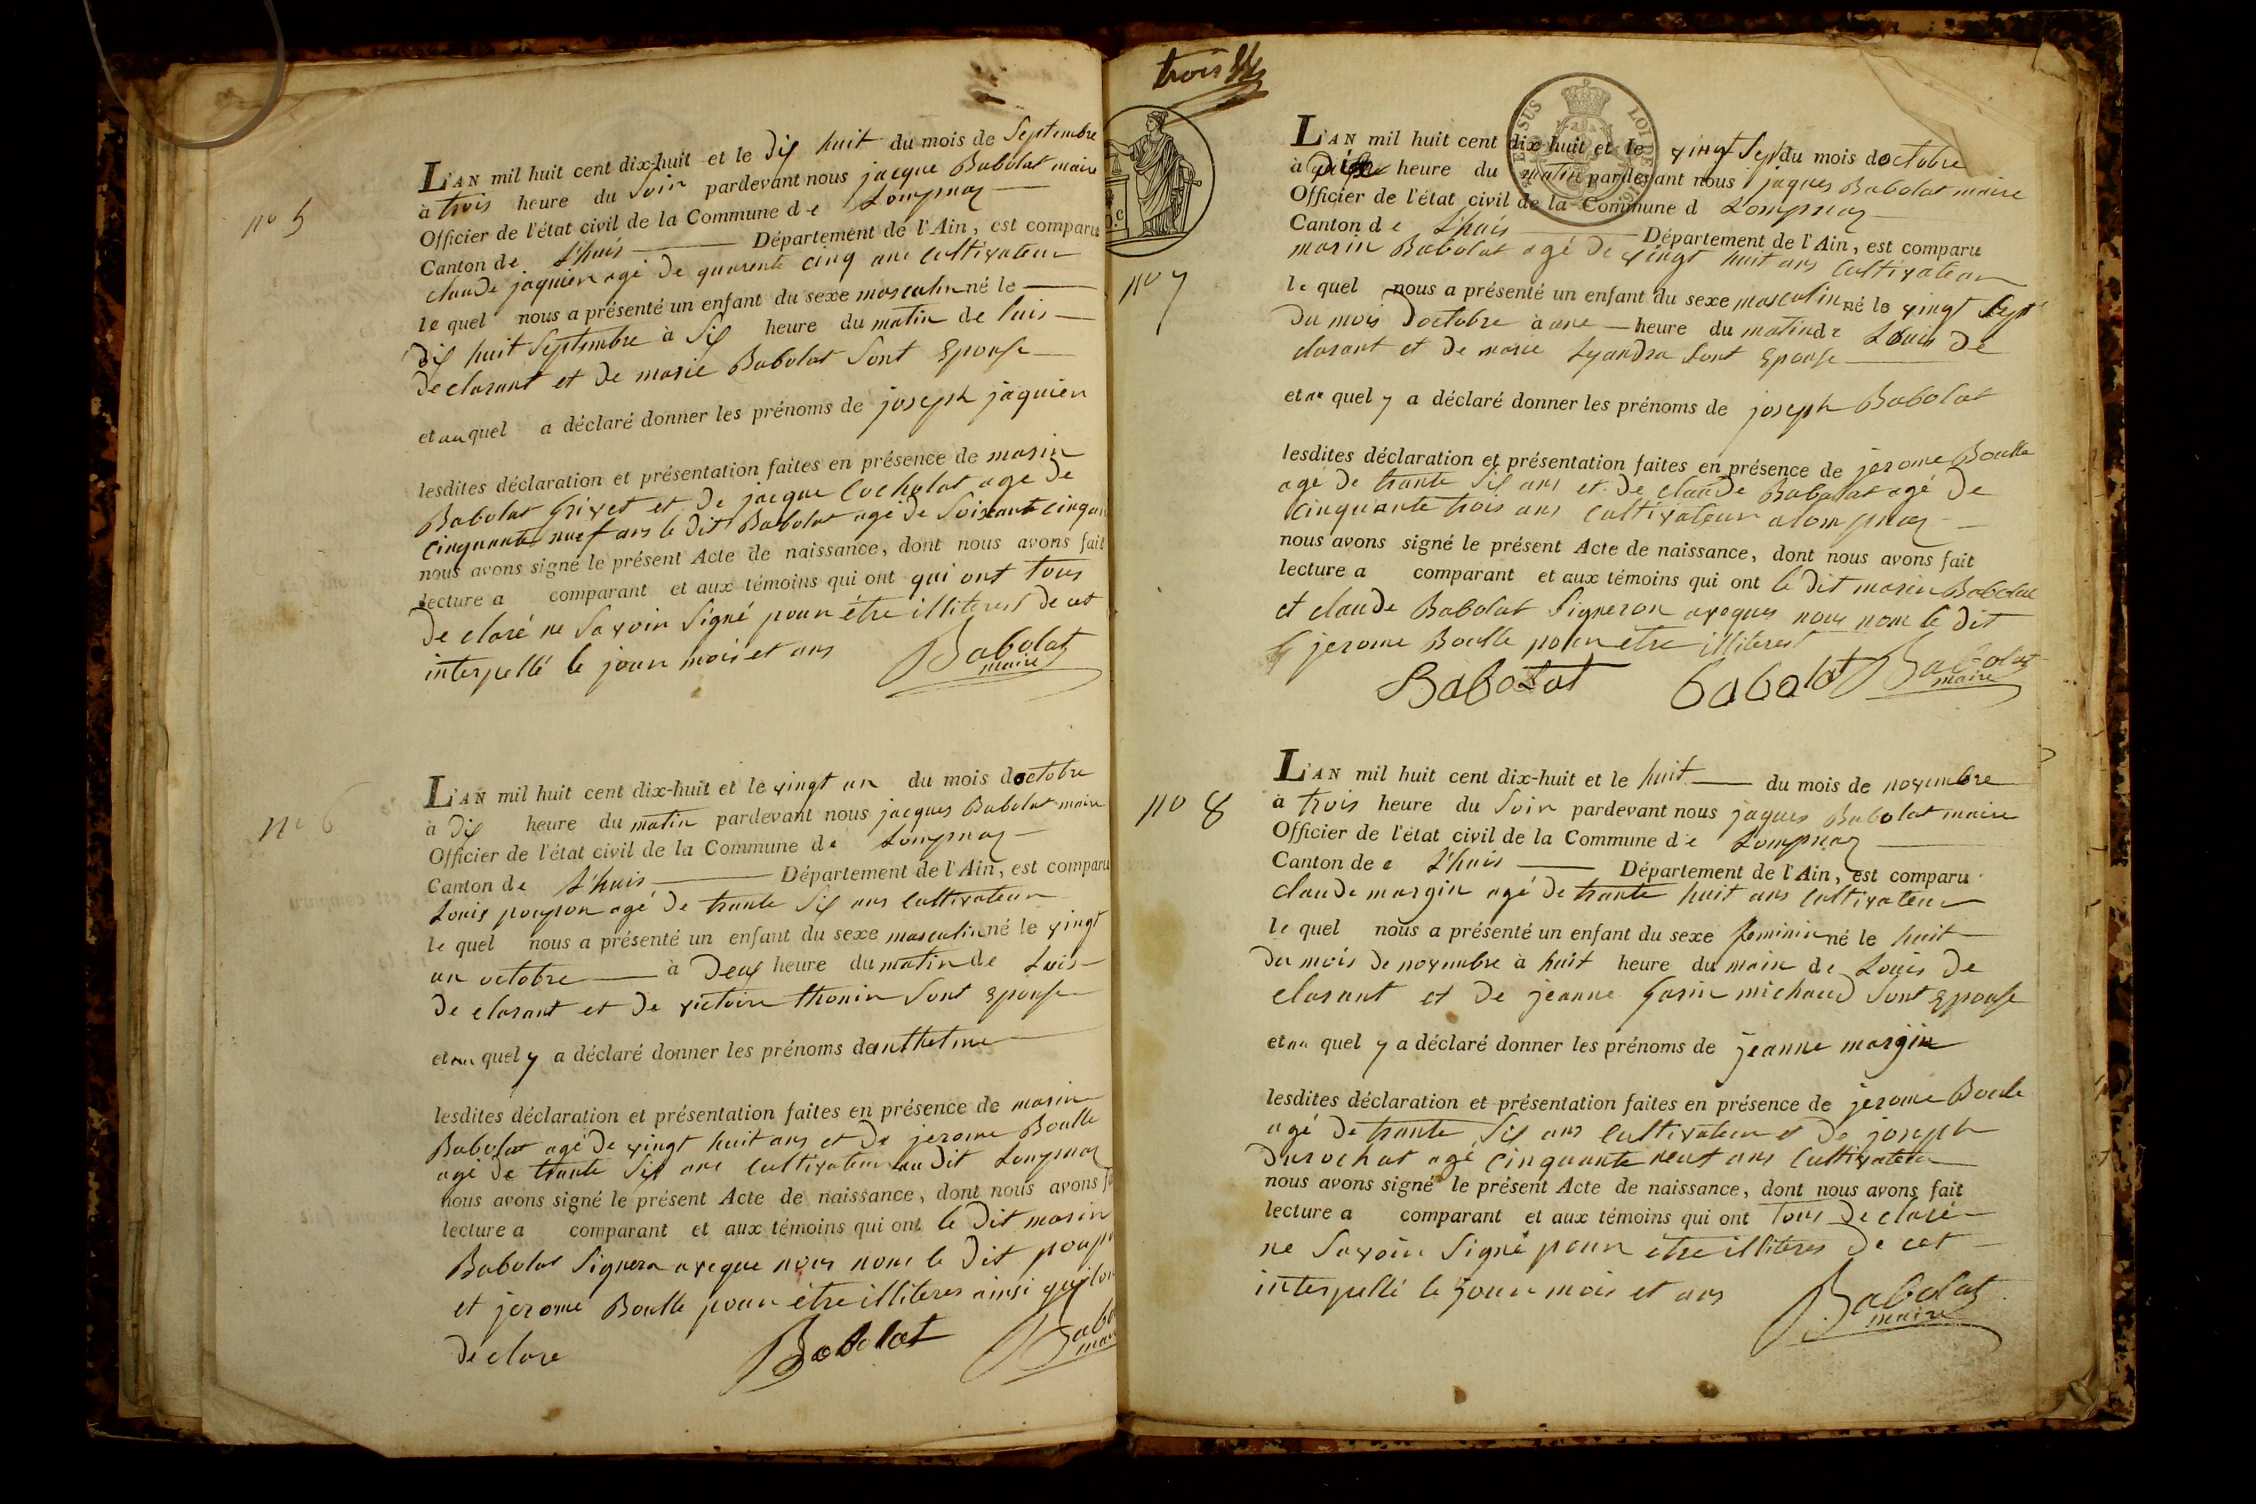 no 5
L'AN mil huit cent dix-huit et le dix huit du mois de Septembre
à trois heure du Soir pardevant nous jacque Babolat maire
Officier de l'état civil de la Commune de Lompnaz
Canton de L'huis Département de l'Ain, est comparu
claude jaquier agé de quarente cinq ans Cultivateur
le quel nous a présenté un enfant du sexe masculin né le
dix huit Septembre à Six heure du matin de luis
de clarant et de marie Babolat Sont Epouse
et au quel a déclaré donner les prénoms de joseph jaquier
lesdites déclaration et présentation faites en présence de marin
Babolat Grivet et de jacque Cocholat age de
cinquante neuf ans le dit Babolat agé de Soixante cinq an
nous avons signé le présent Acte de naissance, dont nous avons fait
lecture a comparant et aux témoins qui ont qui ont tous
de claré ne Savoir Signé pour être illiterest de cet
interpellé le jour mois et ans
Babolat
maire
no 6
L'AN mil huit cent dix-huit et le vingt un du mois doctobre
à dix heure du matin pardevant nous jacques Babolat maire
Officier de l'état civil de la Commune de Lompnaz
Canton de L'huis Département de l'Ain, est comparu
Louis poupon agé de trante Six ans Cultivateur
le quel nous a présenté un enfant du sexe masculin né le vingt
un octobre à deux heure du matin de Luis
de clarant et de victoire thonin Sont Epouse
et au quel y a déclaré donner les prénoms de anthelme
lesdites déclaration et présentation faites en présence de marin
Babolat agé de vingt huit ans et de jerome Boulle
agé de trante Six ans Cultivateur au dit Lompnaz
nous avons signé le présent Acte de naissance, dont nous avons
lecture a comparant et aux témoins qui ont le dit marin
Babolat Signera aveque nous nom le dit
et jerome Boulle pour être illiteres ainsi
de clare
Babolat
trois
SUS LOI DE
no 7
L'AN mil huit cent dix-huit et le vingt Sept du mois doctobre
à heure du matin pardevant nous jaques Babolat maire
Officier de l'état civil de la Commune d Lompnaz
Canton de L'huis Département de l'Ain, est comparu
marin Babolat agé de vingt huit ans Cultivateur
le quel nous a présenté un enfant du sexe masculin né le vingt Sept
du mois doctobre à une heure du matin de Louis de
clarant et de marie Lyandra Sont Epouse
et au quel y a déclaré donner les prénoms de joseph Babolat
lesdites déclaration et présentation faites en présence de jerome Boulle
agé de trante Six ans et de claude Babolat agé de
cinquante trois ans Cultivateur a lompnaz
nous avons signé le présent Acte de naissance, dont nous avons fait
lecture a comparant et aux témoins qui ont le dit marin Babolat
et claude Babolat Signeron aveques nous nom le dit
jerome Boulle pour etre illiterest
Babolat babolat Babolat
maire
no 8
L'AN mil huit cent dix-huit et le huit du mois de novembre
à trois heure du Soir pardevant nous jaques Babolat maire
Officier de l'état civil de la Commune de Lompnaz
Canton de e L'huis Département de l'Ain, est comparu
claude margin agé de trante huit ans Cultivateur
le quel nous a présenté un enfant du sexe feminin né le huit
du mois de novembre à huit heure du main de Louis de
clarant et de jeanne Garin michaud Sont Epouse
et au quel y a déclaré donner les prénoms de jeanne margin
lesdites déclaration et présentation faites en présence de jerome Boulle
agé de trante Six ans Cultivateur et de joseph
Durochat agé cinquante neuf ans Cultivateur
nous avons signé le présent Acte de naissance, dont nous avons fait
lecture a comparant et aux témoins qui ont tous de claré
ne Savoir Signé pour etre illiteres de cet
interpellé le jour mois et ans
Babolat
maire